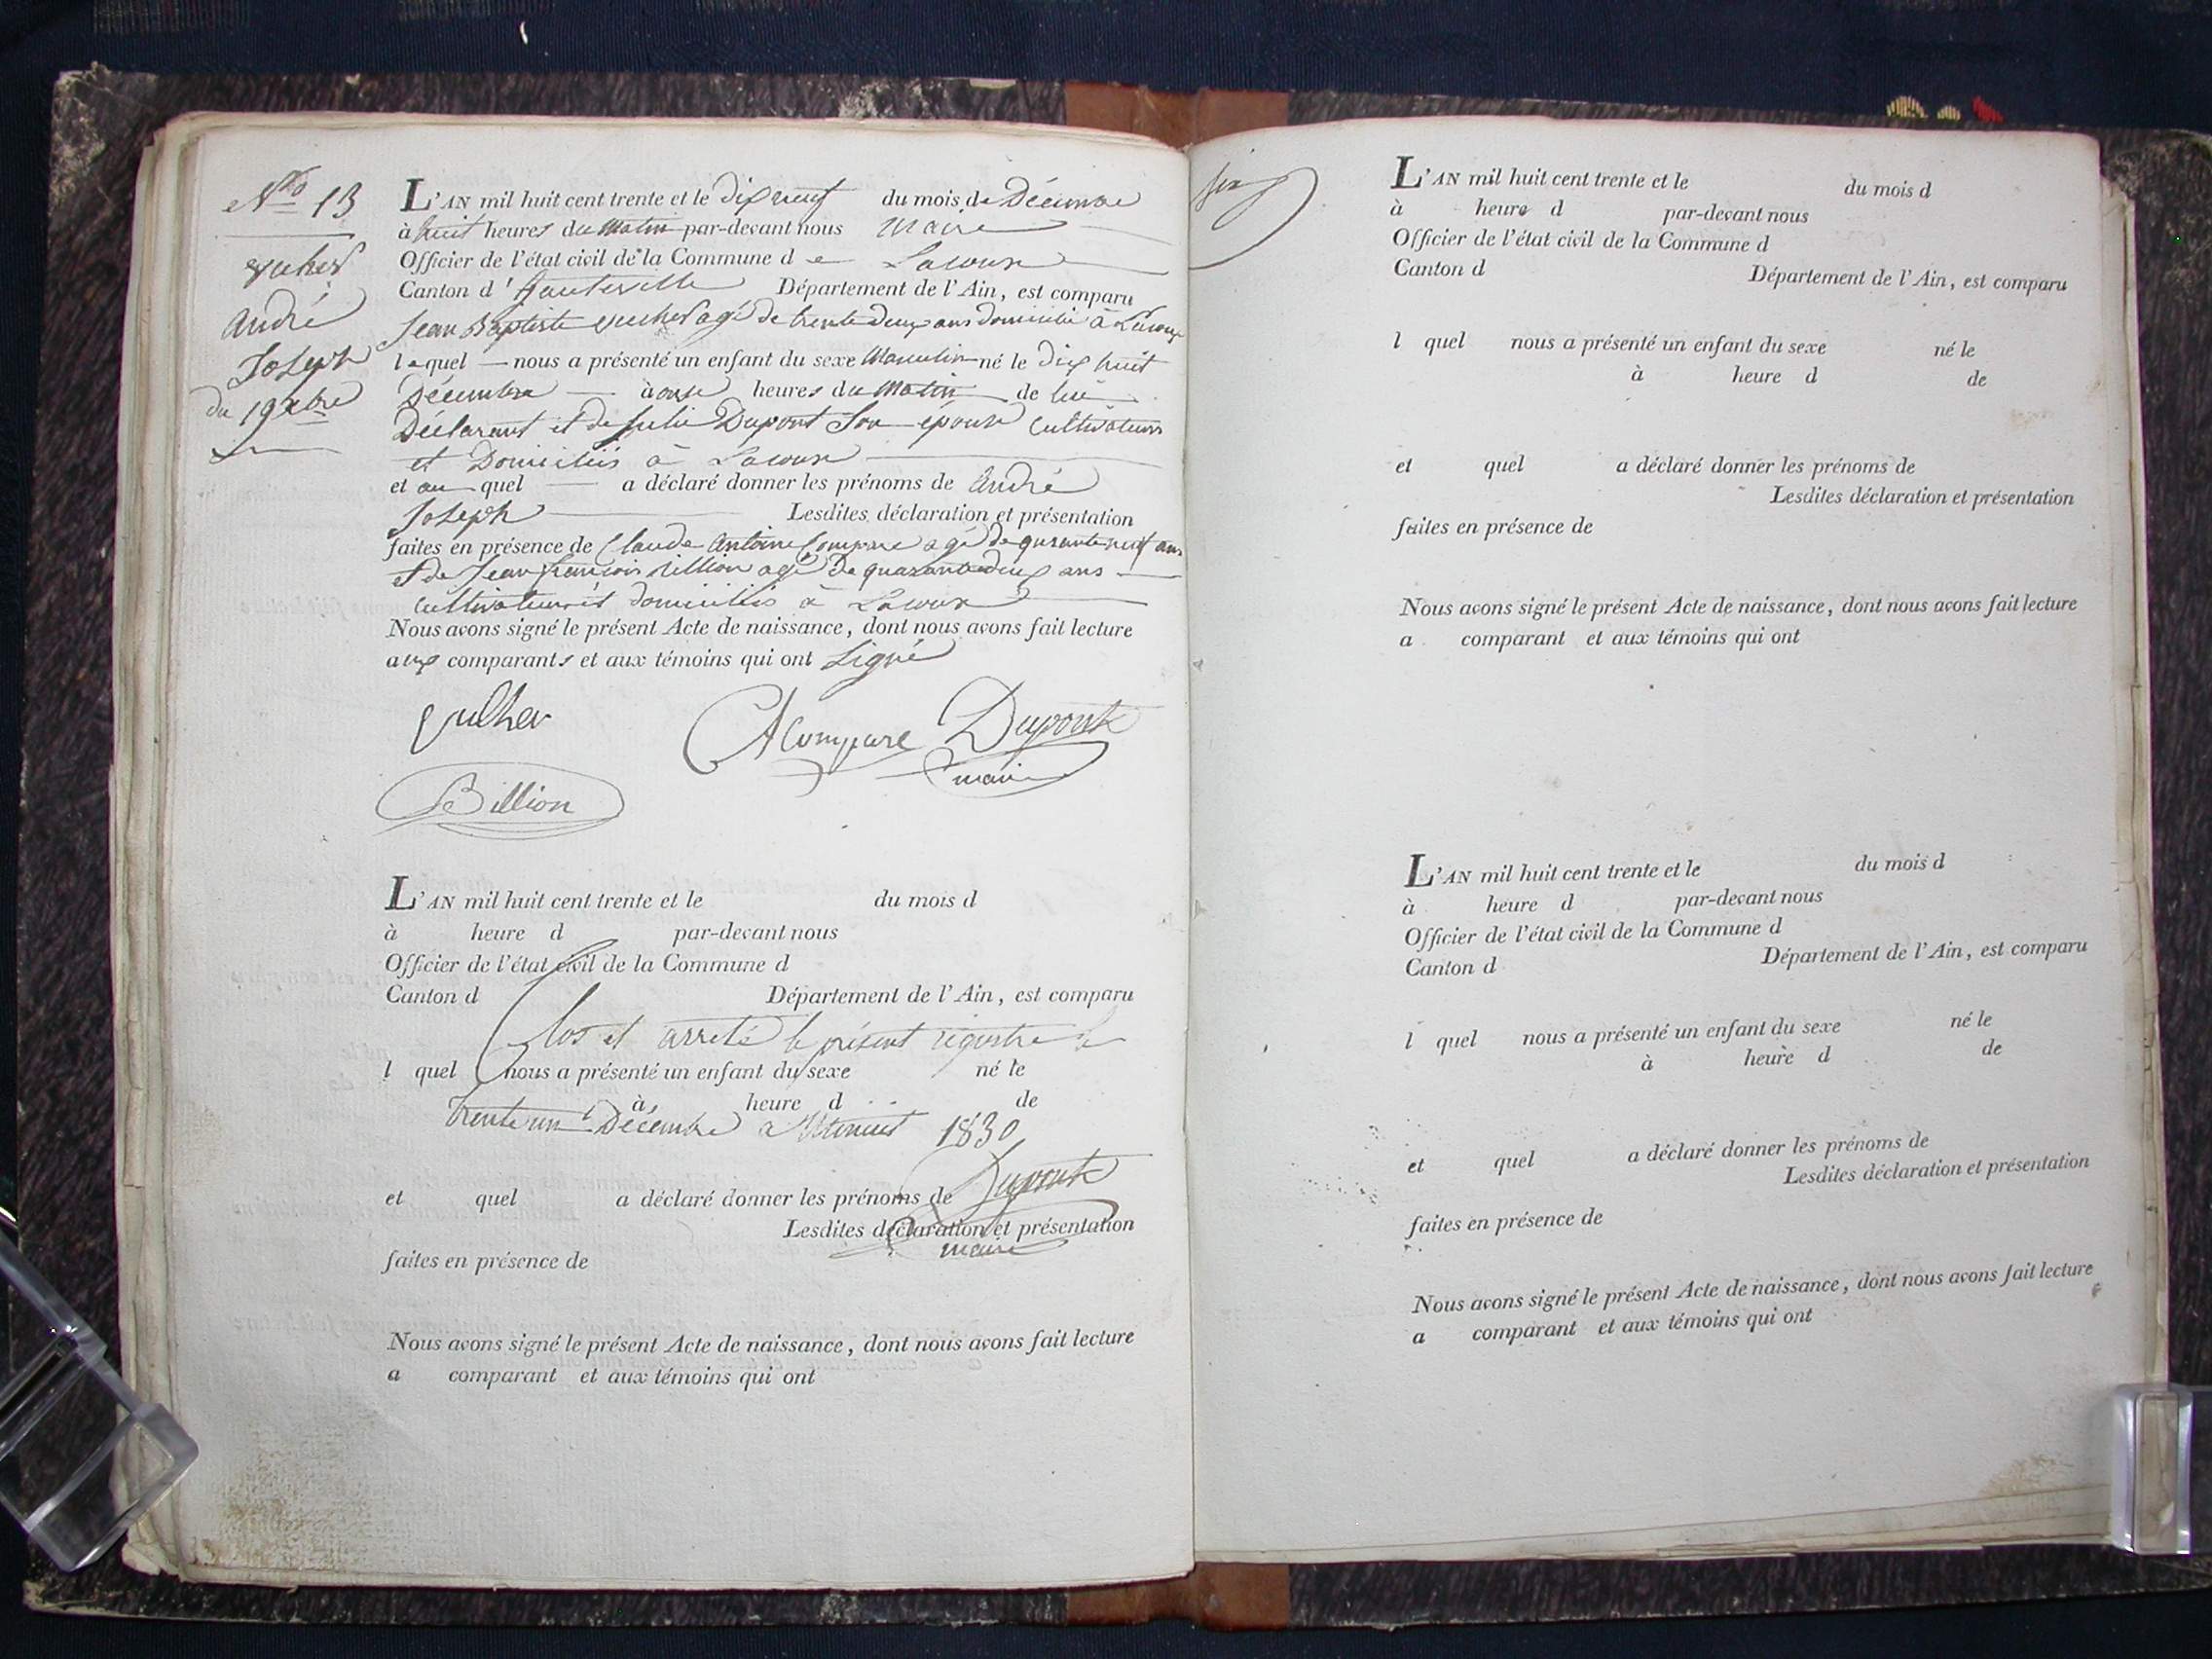 No 13
André
Joseph
du 19 xbre
L'AN mil huit cent trente et le dix neuf du mois de Décembre
à huit heures du Matin par-devant nous Maire
Officier de l'état civil de la Commune de Lacoux
Canton d'hauteville Département de l'Ain, est comparu
Jean Baptiste agé de trente deux ans domicilié à Lacoux
lequel nous a présenté un enfant du sexe Masculin né le dix huit
Décembre à onze heures du Matin de lui
Déclarant et de Julie Dupont Son épouse Cultivateurs
et Domiciliés à Lacoux
et au quel a déclaré donner les prénoms de André
Joseph Lesdites déclaration et présentation
faites en présence de Claude Antoine Compare agé de quarante neuf ans
et de Jean françois Billion agé de quarante deux ans
cultivateurs et domiciliés à Lacoux
Nous avons signé le présent Acte de naissance, dont nous avons fait lecture
aux comparants et aux témoins qui ont Signé
A Compare Dupont
maire
Billion
L'AN mil huit cent trente et le du mois d
à heure d par-devant nous
Officier de l'état civil de la Commune d
Canton d Département de l'Ain, est comparu
Clos et arreté le présent régistre le
l quel nous a présenté un enfant du sexe né le
à heure d de
trente un Décembre a Minuit 1830
Dupont
et quel a déclaré donner les prénoms de
Lesdites déclaration et présentation
maire
faites en présence de
Nous avons signé le présent Acte de naissance, dont nous avons fait lecture
a comparant et aux témoins qui ont
L'AN mil huit cent trente et le du mois d
à heure d par-devant nous
Officier de l'état civil de la Commune d
Canton d Département de l'Ain, est comparu
l quel nous a présenté un enfant du sexe né le
à heure d de
et quel a déclaré donner les prénoms de
Lesdites déclaration et présentation
faites en présence de
Nous avons signé le présent Acte de naissance, dont nous avons fait lecture
a comparant et aux témoins qui ont
L'AN mil huit cent trente et le du mois d
à heure d par-devant nous
Officier de l'état civil de la Commune d
Canton d Département de l'Ain, est comparu
l quel nous a présenté un enfant du sexe né le
à heure d de
et quel a déclaré donner les prénoms de
Lesdites déclaration et présentation
faites en présence de
Nous avons signé le présent Acte de naissance, dont nous avons fait lecture
a comparant et aux témoins qui ont